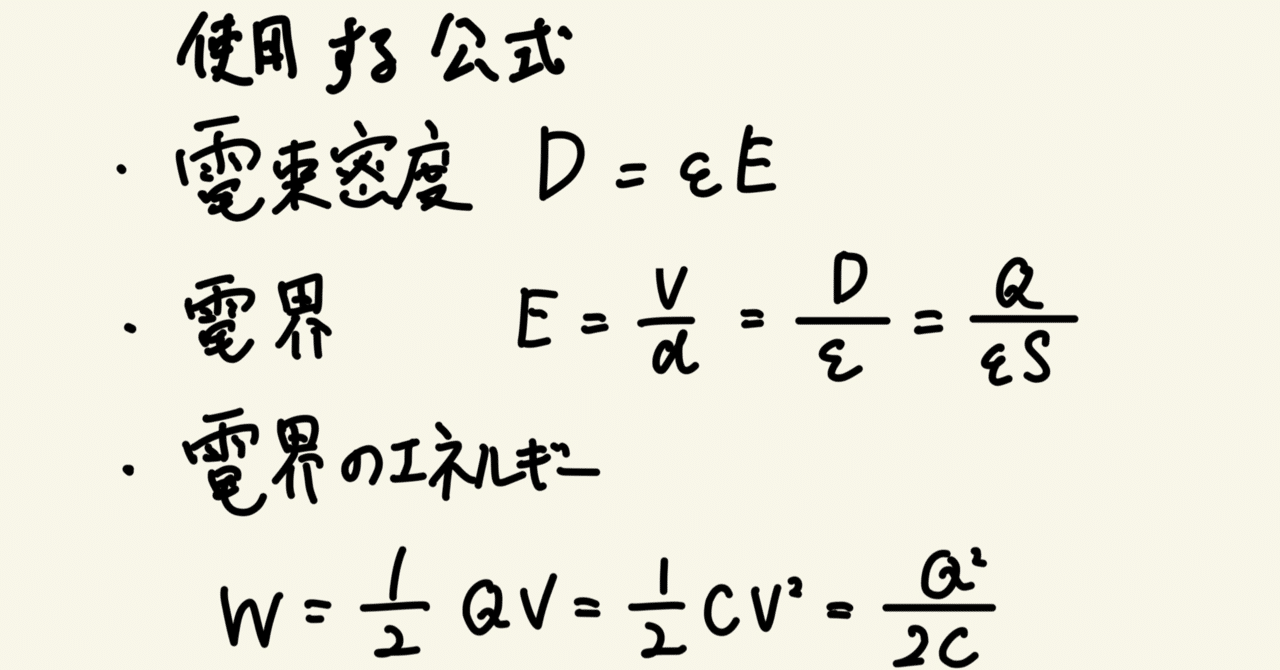 使用する公式
・電束密度 D = εE
・電界 E = V/d = D/ε = Q/εS
・電界のエネルギー
W = 1/2 QV = 1/2 CV² = Q²/2C